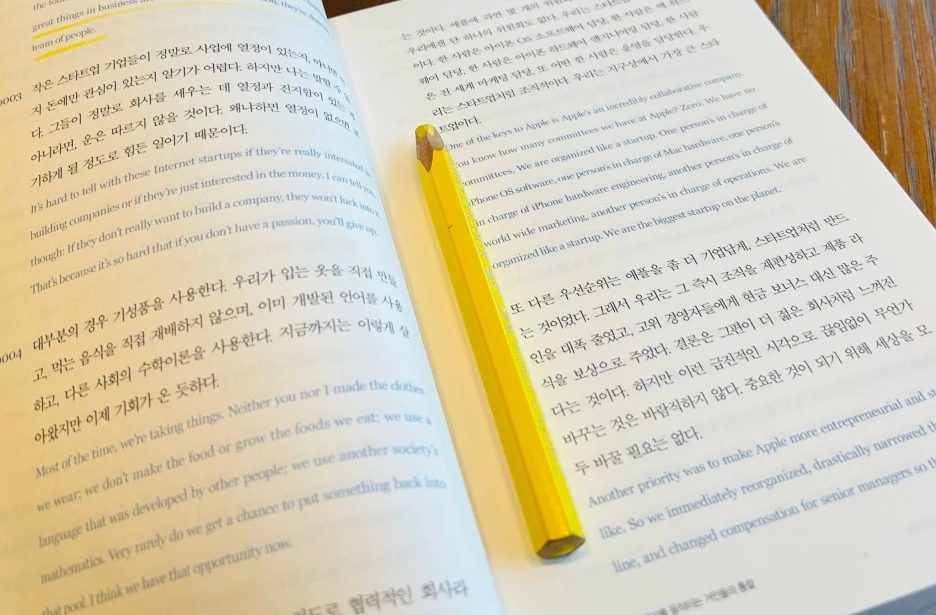 the foun
great things in business are
son, they're done
team of people.
0003
작은 스타트업 기업들이 정말로 사업에 열정이 있는지, 아니면
지 돈에만 관심이 있는지 알기가 어렵다. 하지만 나는 말할 수
다. 그들이 정말로 회사를 세우는 데 열정과 진지함이 있는
아니라면, 운은 따르지 않을 것이다. 왜냐하면 열정이 없으면
기하게 될 정도로 힘든 일이기 때문이다.
It's hard to tell with these Internet startups if they're really interested
building companies or if they're just interested in the money. I can tell you,
though: If they don't really want to build a company, they won't luck into it.
That's because it's so hard that if you don't have a passion, you'll give up.
0004
대부분의 경우 기성품을 사용한다. 우리가 입는 옷을 직접 만들
고, 먹는 음식을 직접 재배하지 않으며, 이미 개발된 언어를 사용
하고, 다른 사회의 수학이론을 사용한다. 지금까지는 이렇게 살
아왔지만 이제 기회가 온 듯하다.
Most of the time, we're taking things. Neither you nor I made the clothes
we wear; we don't make the food or grow the foods we eat; we use a
language that was developed by other people; we use another society's
mathematics. Very rarely do we get a chance to put something back into
that pool. I think we have that opportunity now.
협력적인 회사라
는 것이다. 애플에 과연 몇 개의 위원회
우리에겐 단 하나의 위원회도 없다. 우리는 스타트
이다. 한 사람은 아이폰 OS 소프트웨어 담당, 한 사람은 맥 하드
웨어 담당, 한 사람은 아이폰 하드웨어 엔지니어링 담당, 한 사람
은 전 세계 마케팅 담당, 또 어떤 한 사람은 운영을 담당한다. 우
리는 스타트업처럼 조직적이다. 우리는 지구상에서 가장 큰 스타
트업이다.
One of the keys to Apple is Apple's an incredibly collaborative company.
You know how many committees we have at Apple? Zero. We have no
committees. We are organized like a startup. One person's in charge of
Phone OS software, one person's in charge of Mac hardware, one person's
in charge of iPhone hardware engineering, another person's in charge of
world wide marketing, another person's in charge of operations. We are
organized like a startup. We are the biggest startup on the planet.
또 다른 우선순위는 애플을 좀 더 기업답게, 스타트업처럼 만드
는 것이었다. 그래서 우리는 그 즉시 조직을 재편성하고 제품 라
인을 대폭 줄였고, 고위 경영자들에게 현금 보너스 대신 많은 주
식을 보상으로 주었다. 결론은 그편이 더 젊은 회사처럼 느껴진
다는 것이다. 하지만 이런 급진적인 시각으로 끊임없이 무언가
바꾸는 것은 바람직하지 않다. 중요한 것이 되기 위해 세상을 모
두 바꿀 필요는 없다.
Another priority was to make Apple more entrepreneurial and st
like. So we immediately reorganized, drastically narrowed th
line, and changed compensation for senior managers so th
움직이는 거인들의 통찰